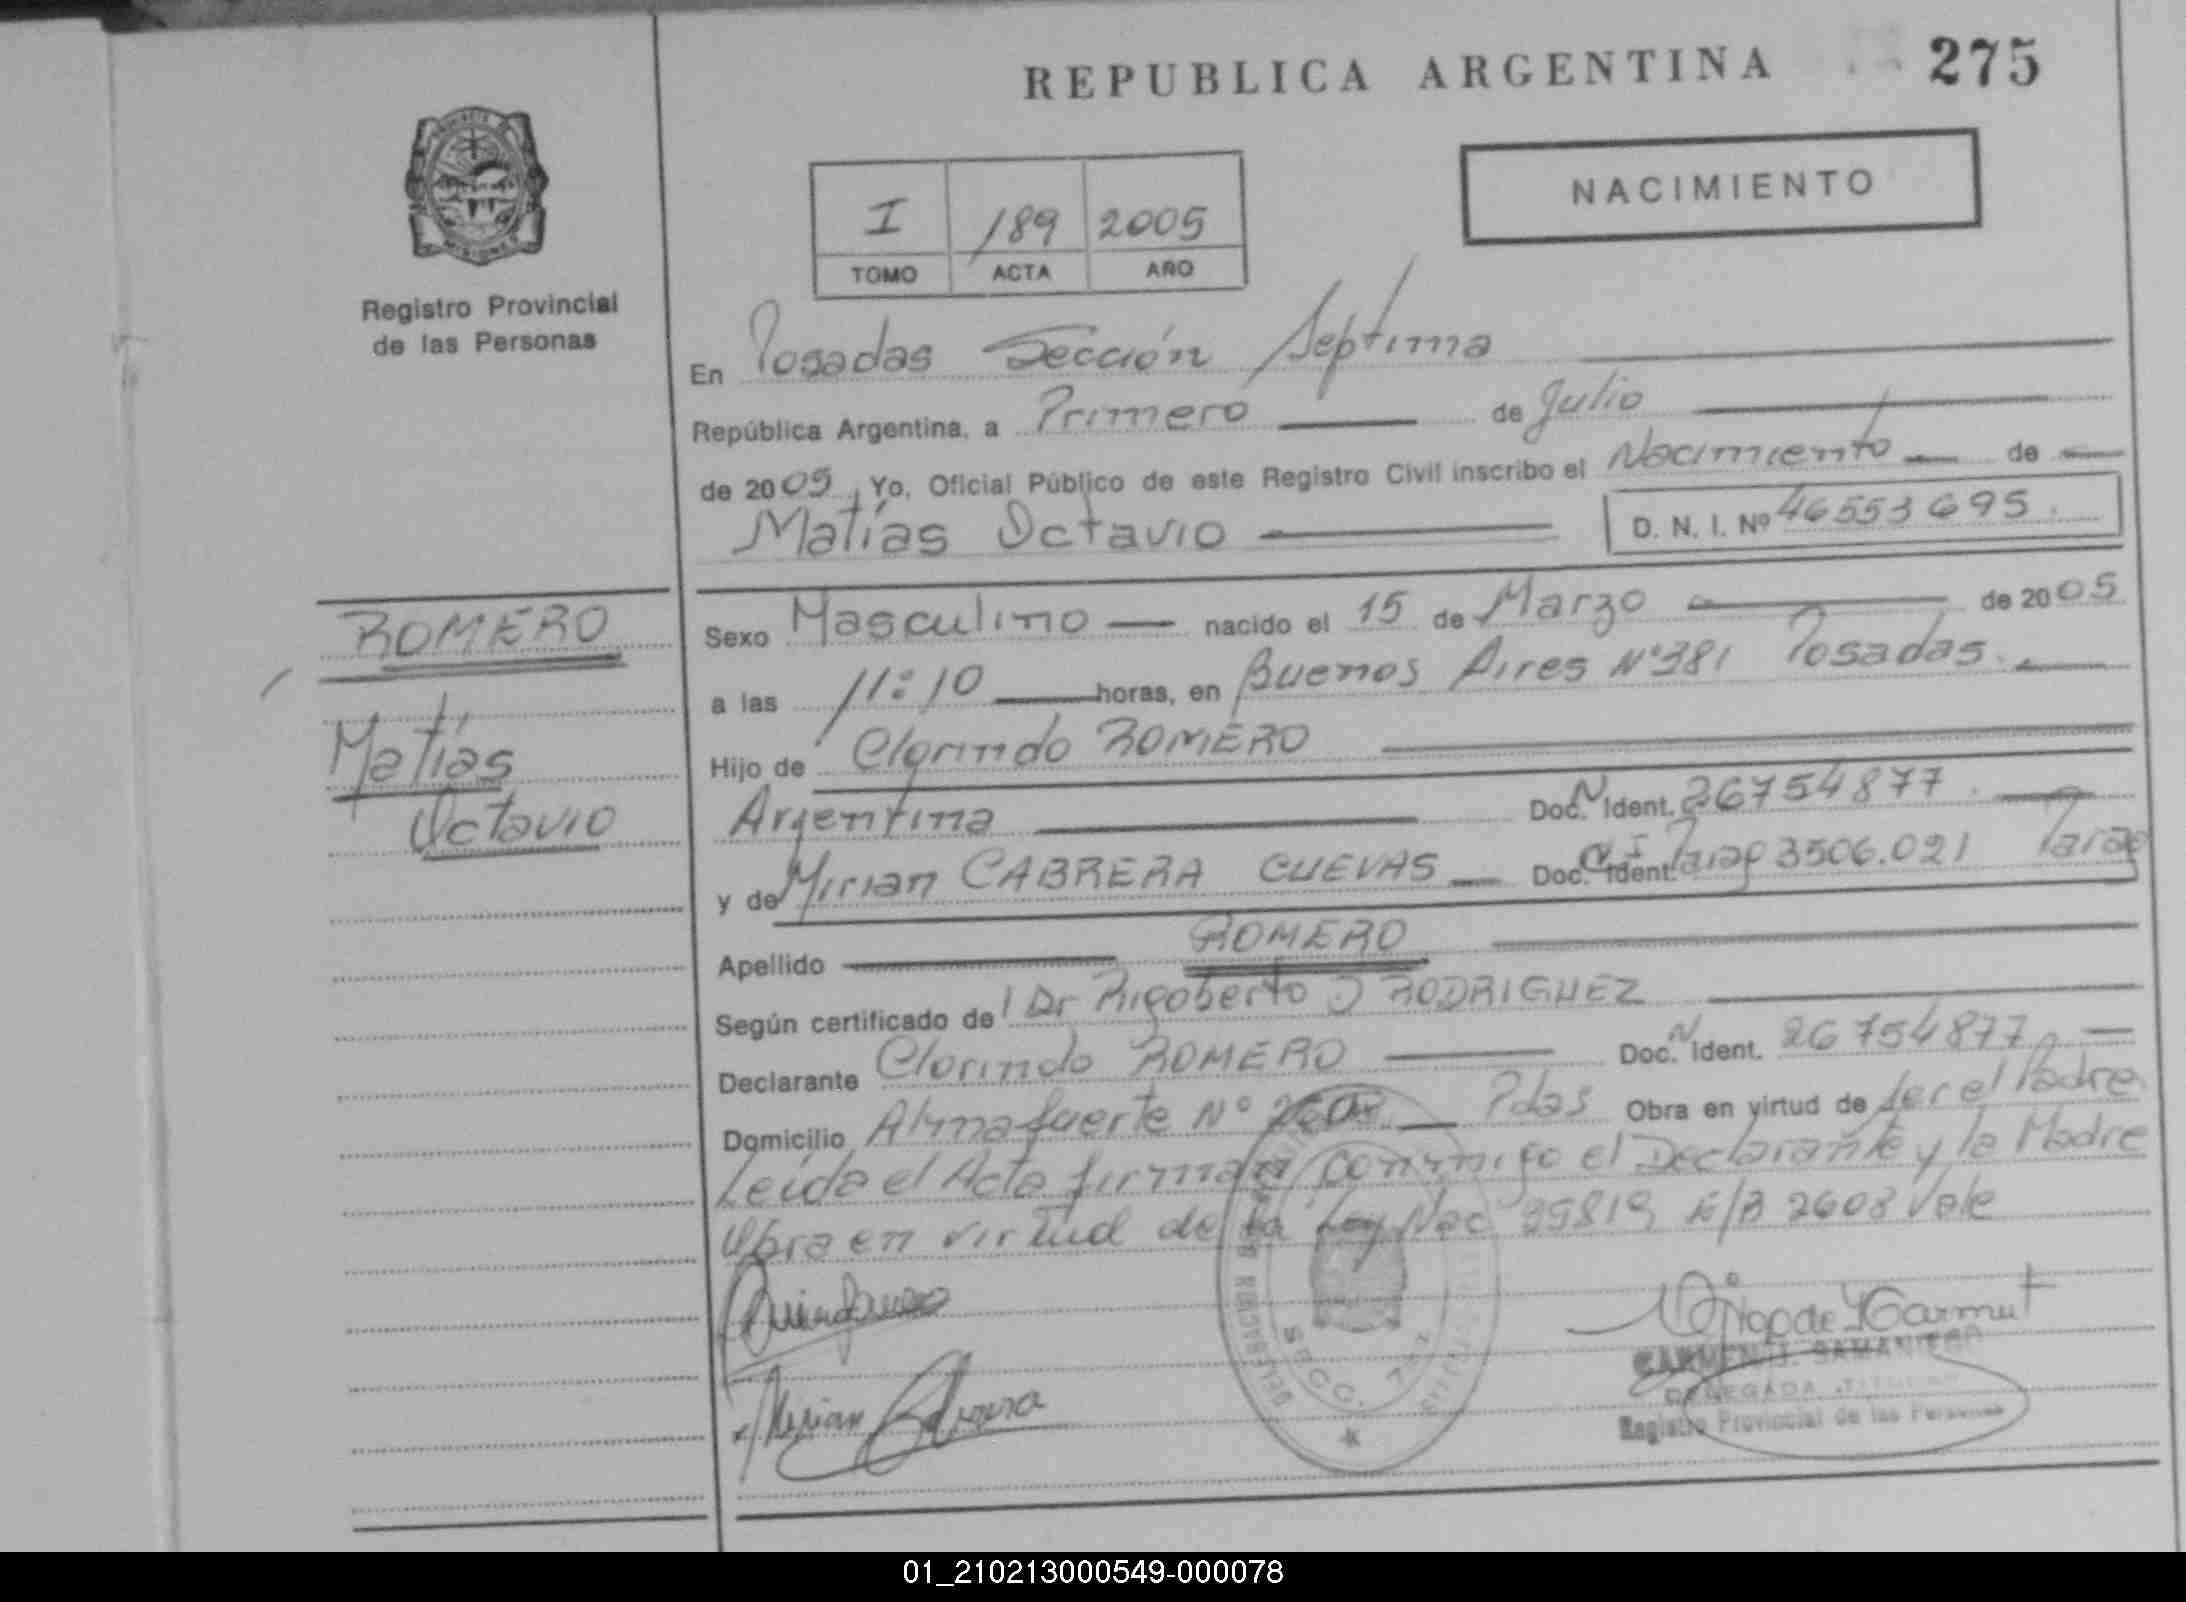 REPUBLICA ARGENTINA 275
NACIMIENTO
I /189 2005
TOMO ACTA AÑO
PROVINCIA DE
MISIONES
Registro Provincial
de las Personas
En Posadas Sección Septima
República Argentina, a Primero de Julio
de 2005, Yo, Oficial Público de este Registro Civil inscribo el Nacimiento de
Matías Octavio D. N. I. Nº 46553695.
ROMERO
Matías
Octavio
Sexo Masculino nacido el 15 de Marzo de 2005
a las 11:10 horas, en Buenos Aires Nº 381 Posadas.
Hijo de Clorindo ROMERO
Argentina Doc. N Ident. 26754877.
y de Mirian CABRERA CUEVAS Doc. Ident. Parag 3506.021 Parag
Apellido ROMERO
Según certificado de l Dr Rigoberto J RODRIGUEZ
Declarante Clorindo ROMERO Doc. N Ident. 26754877
Domicilio Almafuerte Nº Pdas Obra en virtud de ser el Padre.
Leída el Acta firman conmigo el Declarante y la Madre
Obra en virtud de la Ley Nac E/R 2608 Vale
Mirian Cabrera
SECC. 7
CARMEN J. SAMANIEGO
DELEGADA TITULAR
Registro Provincial de las Personas
01_210213000549-000078